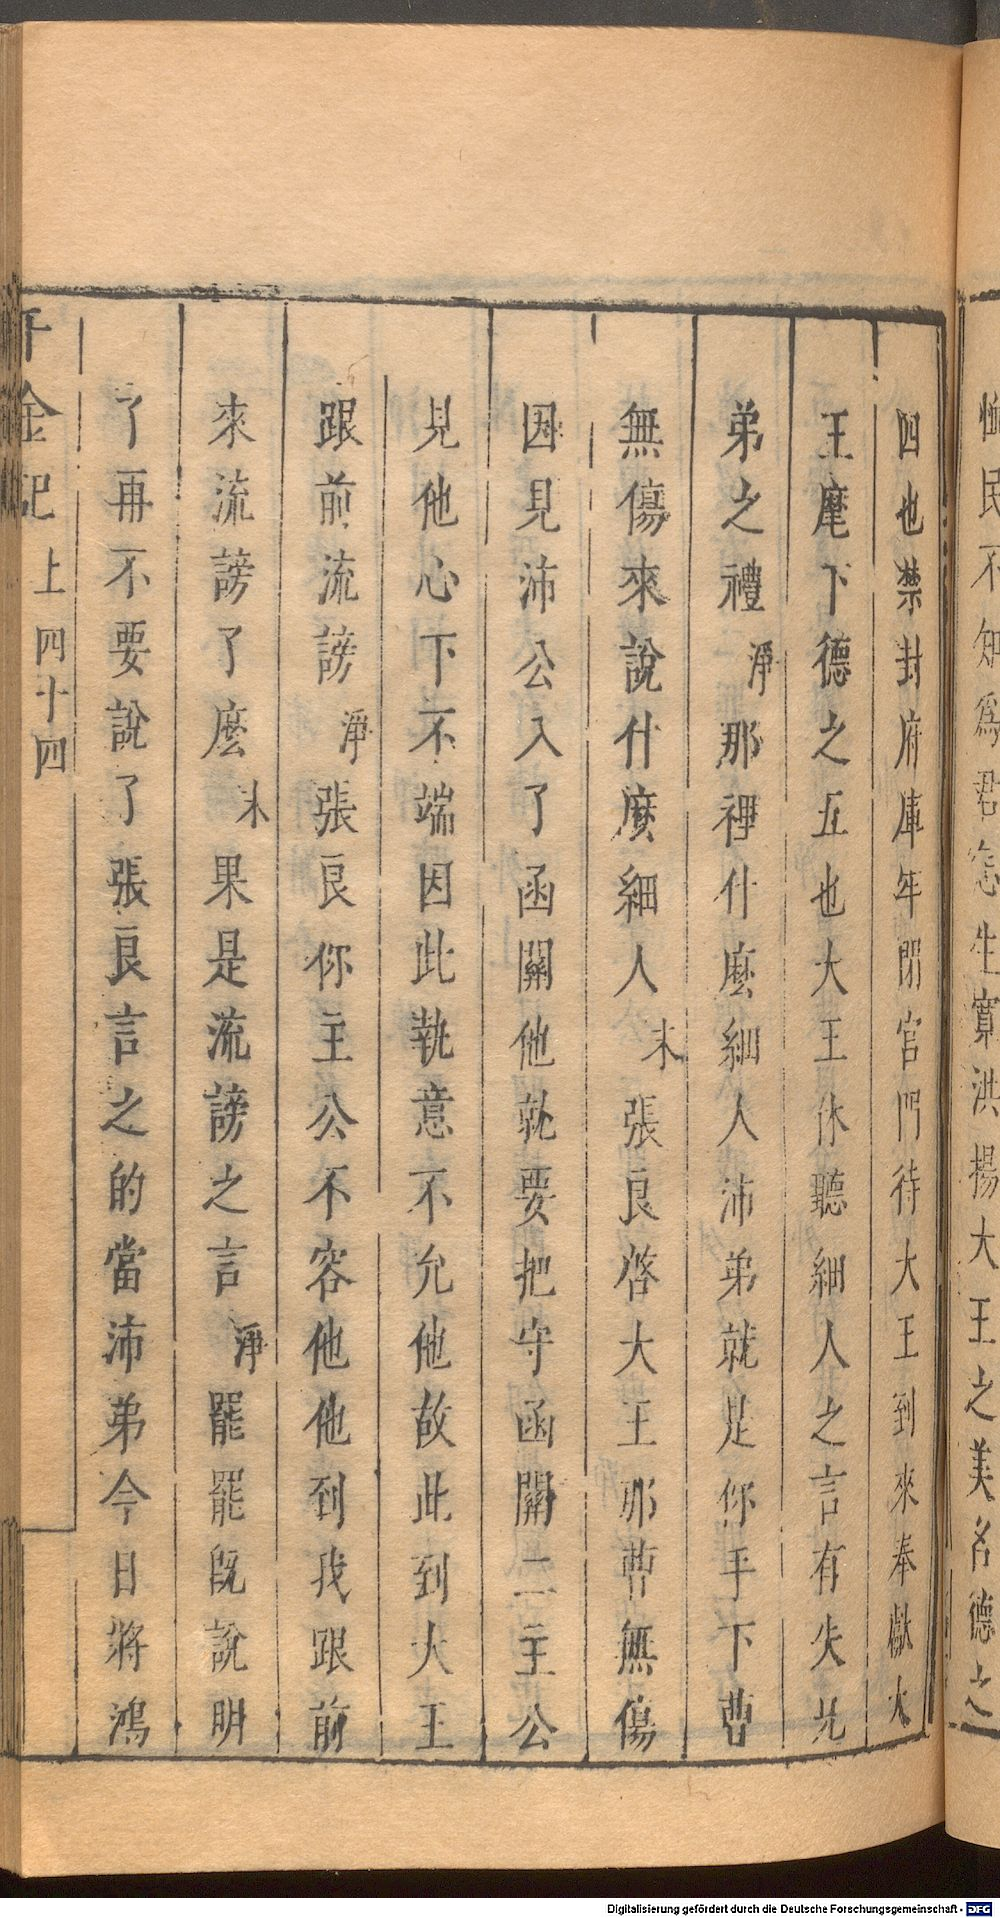 恤民不知爲君怎生寬洪揚大王之美名德之
四也禁封府庫牢閉官門待大王到來奉獻大
王麾下德之五也大王休聽細人之言有失兄
弟之禮淨那裡什麼細人沛弟就是你手下曹
無傷來說什麼細人末張良啓大王那曹無傷
因見沛公入了函關他就要把守函關二主公
見他心下不端因此執意不允他故此到大王
跟前流謗淨張良你主公不容他他到我跟前
來流謗了麽末果是流謗之言淨罷罷既說明
了再不要說了張良言之的當沛弟今日將鴻
千金記 上 四十四
Digitalisierung gefördert durch die Deutsche Forschungsgemeinschaft - DFG